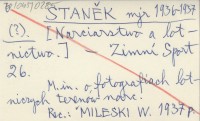 STANĚK mjr 1936-1937
(3). [Narciarstwo a lot-
nictwo.] - Zimní Sport
26.
M.in. o fotografiach lot-
niczych terenów narc.
Rec.: MILESKI W. 1937 p.